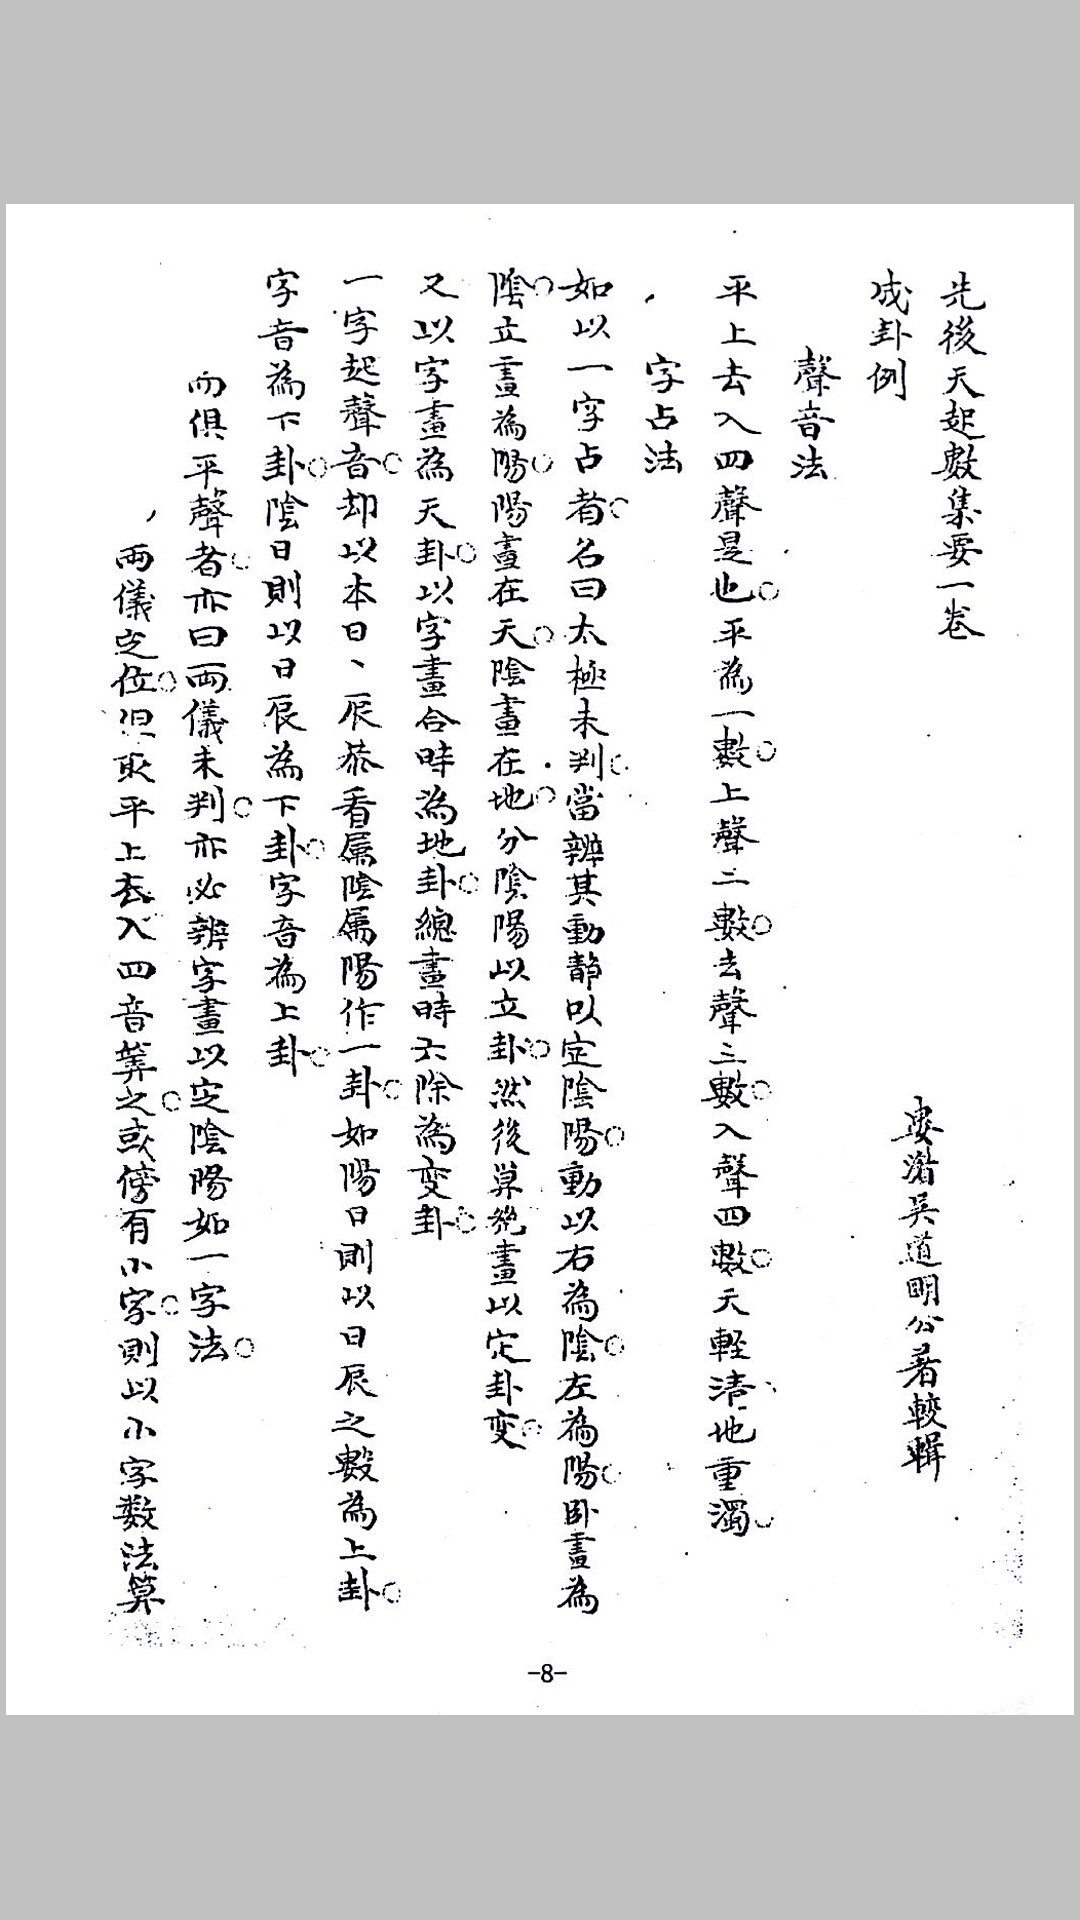 先後天起數集要一卷
婁澘吳道明公著較輯
成卦例
聲音法
平上去入四聲是也。平為一數。上聲二數。去聲三數。入聲四數。天輕清、地重濁。
字占法
如以一字占者。名曰太極未判。當辨其動静以定陰陽。動以右為陰。左為陽。卧畫為
陰。立畫為陽。陽畫在天。陰畫在地。分陰陽以立卦。然後算總畫以定卦變。
又以字畫為天卦。以字畫合時為地卦。總畫時六除為变卦。
一字起聲音。却以本日、辰叅看属陰属陽作一卦。如陽日則以日辰之數為上卦。
字音為下卦。陰日則以日辰為下卦。字音為上卦。
而俱平聲者。亦曰兩儀未判。亦必辨字畫以定陰陽如一字法。
兩儀定位。但取平上去入四音筭之。或傍有小字。則以小字数法算
-8-